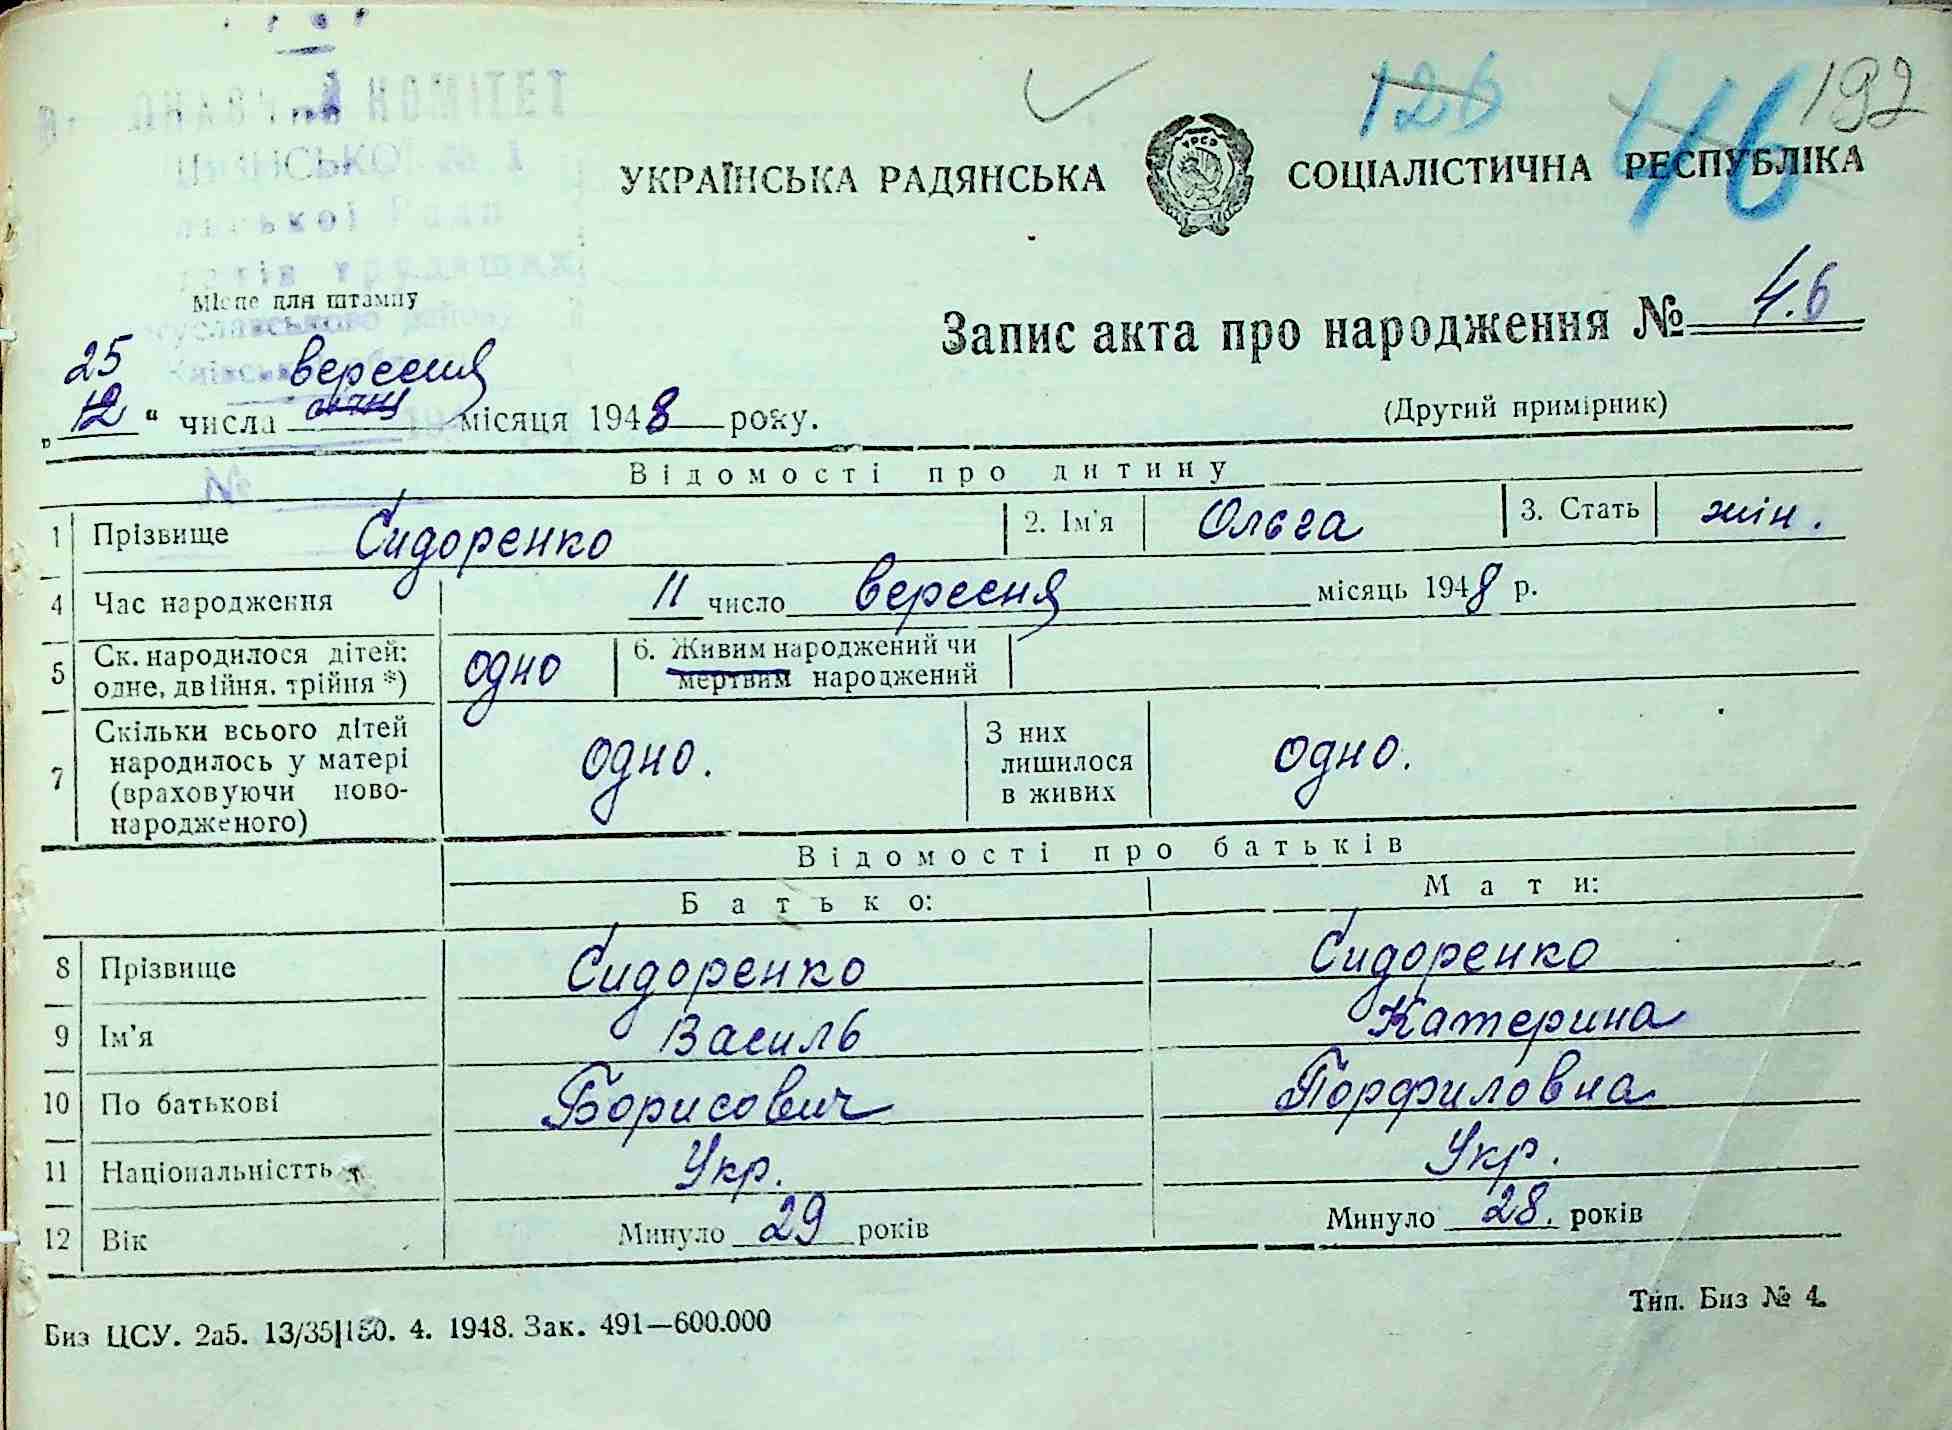 126 46 192
КОМІТЕТ
УКРАЇНСЬКА РАДЯНСЬКА СОЦІАЛІСТИЧНА РЕСПУБЛІКА
УРСР
Місце для штампу
Запис акта про народження № 46
25 вересня
„12“ числа січня місяця 1948 року.
(Другий примірник)
№
Відомості про дитину
1 Прізвище Сидоренко 2. Ім'я Ольга 3. Стать жін.
4 Час народження 11 число вересня місяць 1948 р.
5 Ск. народилося дітей: одно 6. Живим народжений чи
одне, двійня, трійня *) мертвим народжений
7 Скільки всього дітей
народилось у матері
(враховуючи ново-
народженого) одно.
З них
лишилося
в живих одно.
Відомості про батьків
Батько: Мати:
8 Прізвище Сидоренко Сидоренко
9 Ім'я Василь Катерина
10 По батькові Борисович Порфиловна
11 Національністть Укр. Укр.
12 Вік Минуло 29 років Минуло 28. років
Биз ЦСУ. 2а5. 13/35|150. 4. 1948. Зак. 491—600.000
Тип. Биз № 4.